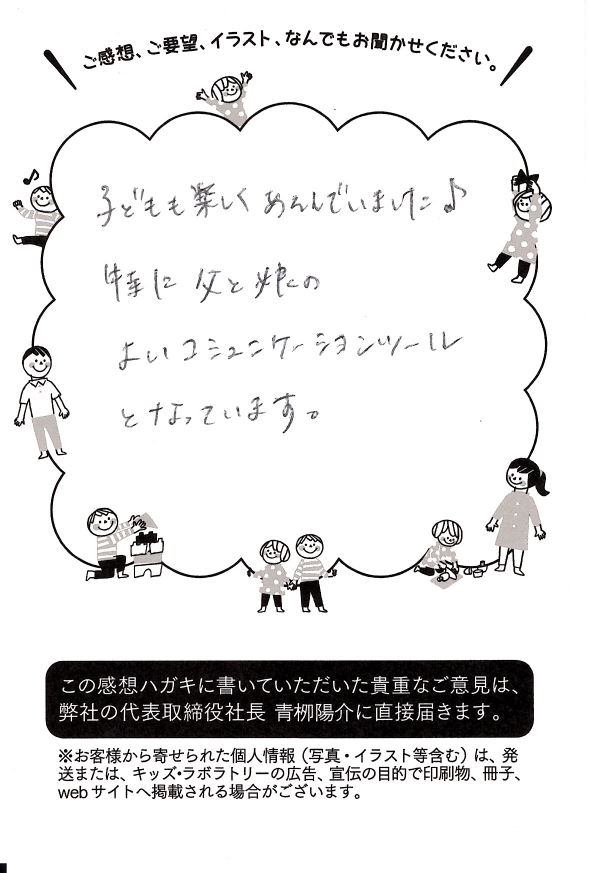 ご感想、ご要望、イラスト、なんでもお聞かせください。
子どもも楽しくあそんでいました♪
特に父と娘の
よいコミュニケーションツール
となっています。
この感想ハガキに書いていただいた貴重なご意見は、
弊社の代表取締役社長 青栁陽介に直接届きます。
※お客様から寄せられた個人情報（写真・イラスト等含む）は、発
送または、キッズ・ラボラトリーの広告、宣伝の目的で印刷物、冊子、
webサイトへ掲載される場合がございます。